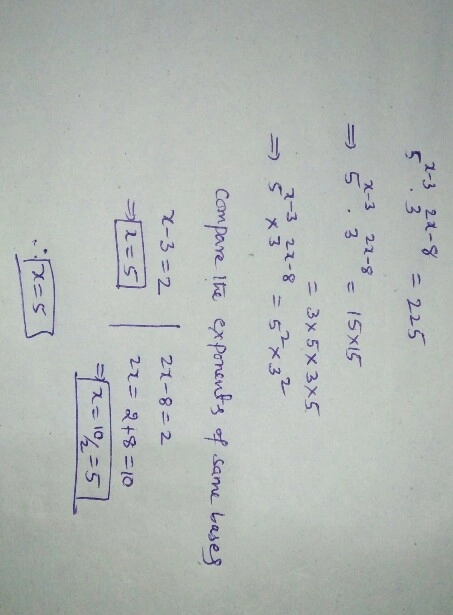 5^{x-3} · 3^{2x-8} = 225
⇒ 5^{x-3} · 3^{2x-8} = 15×15
= 3×5×3×5
⇒ 5^{x-3} × 3^{2x-8} = 5² × 3²
Compare the exponents of same bases
x-3=2 | 2x-8=2
⇒ x=5 | 2x=2+8=10
⇒ x=10/2=5
∴ x=5